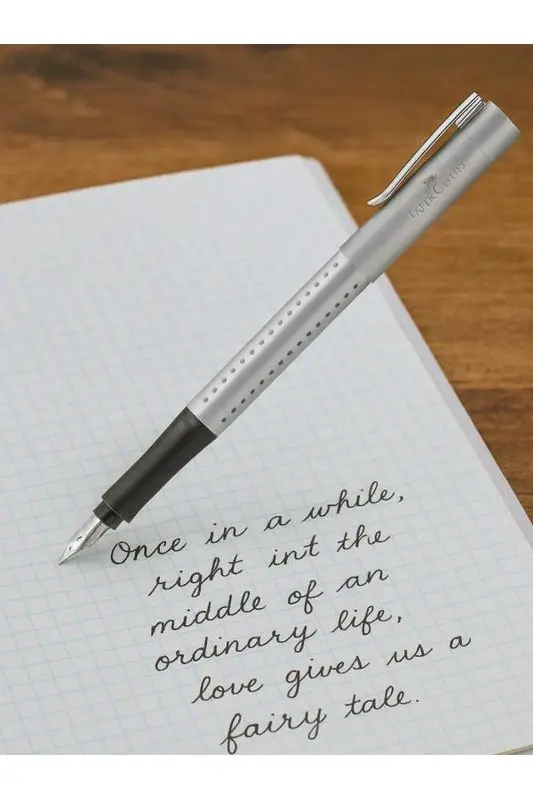 FABER-CASTELL
Once in a while,
right int the
middle of an
ordinary life,
love gives us a
fairy tale.